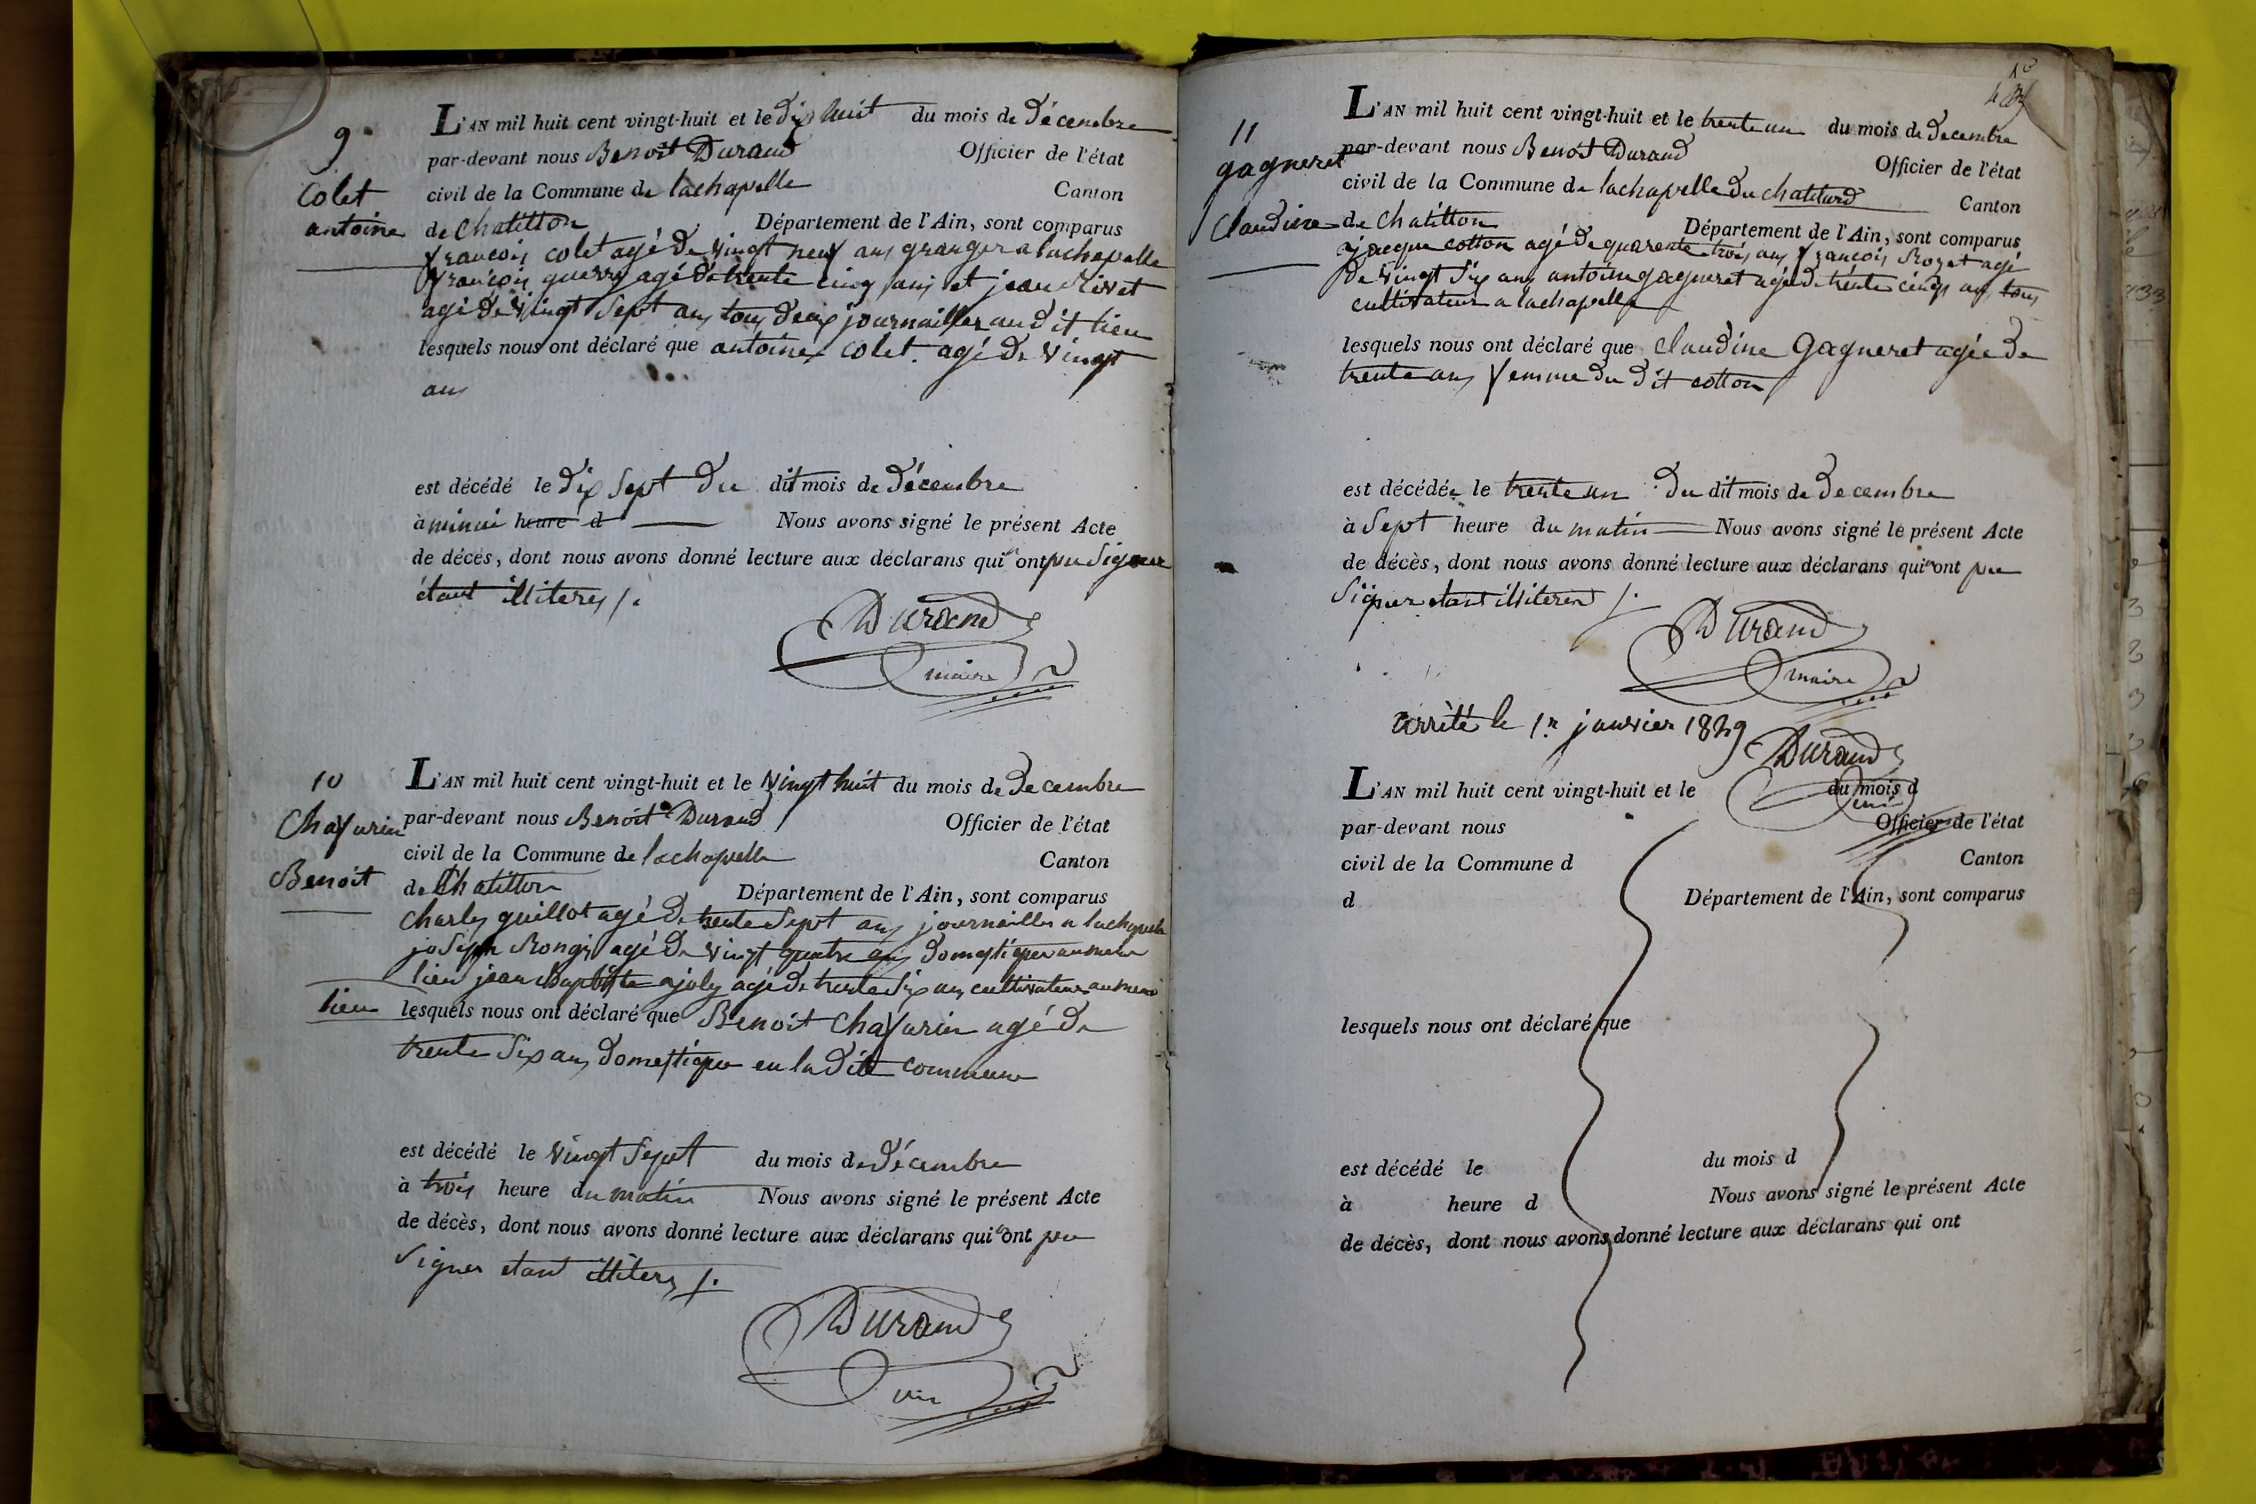 9
Colet
antoine
L'AN mil huit cent vingt-huit et le dix huit du mois de décembre
par-devant nous Benoit Durand Officier de l'état
civil de la Commune de lachapelle Canton
de Chatillon Département de l'Ain, sont comparus
françois colet agé de vingt neuf ans granger a lachapelle
françois guerry agé de trente cinq ans et jean Rivet
agé de vingt sept ans tous deux journaillier au dit lieu
lesquels nous ont déclaré que antoine colet agé de vingt
ans
est décédé le dix sept du dit mois de décembre
à minui heure d Nous avons signé le présent Acte
de décès, dont nous avons donné lecture aux déclarans qui n'ont pu signer
étant illiterés
Durand
maire
10
Chafurin
Benoit
L'AN mil huit cent vingt-huit et le vingt huit du mois de decembre
par-devant nous Benoit Durand Officier de l'état
civil de la Commune de lachapelle Canton
de Chatillon Département de l'Ain, sont comparus
Charles guillot agé de trente sept ans journaillier a lachapelle
joseph Rongi agé de vingt quatre ans domestique au meme
lieu jean Baptiste ajoly agé de trente six ans cultivateur au meme
lieu
lesquels nous ont déclaré que Benoit Chafurin agé de
trente six ans domestique en la dite commune
est décédé le vingt sept du mois de décembre
à trois heure du matin Nous avons signé le présent Acte
de décès, dont nous avons donné lecture aux déclarans qui n'ont pu
signer etant illiterés
Durand
11
gagneret
Claudine
L'AN mil huit cent vingt-huit et le trente un du mois de decembre
par-devant nous Benoit Durand Officier de l'état
civil de la Commune de lachapelle du chatelard Canton
de Chatillon Département de l'Ain, sont comparus
jacque cotton agé de quarente trois ans françois Rozet agé
de vingt six ans antoine gagneret agé de trente cinq ans tous
cultivateur a lachapelle
lesquels nous ont déclaré que claudine Gagneret agée de
trente ans femme du dit cotton
est décédée le trente un du dit mois de decembre
à sept heure du matin Nous avons signé le présent Acte
de décès, dont nous avons donné lecture aux déclarans qui n'ont pu
signer etant illiteres
Durand
maire
arrêté le 1.r janvier 1829
Durand
L'AN mil huit cent vingt-huit et le du mois d
par-devant nous Officier de l'état
civil de la Commune d Canton
d Département de l'Ain, sont comparus
lesquels nous ont déclaré que
est décédé le du mois d
à heure d Nous avons signé le présent Acte
de décès, dont nous avons donné lecture aux déclarans qui ont